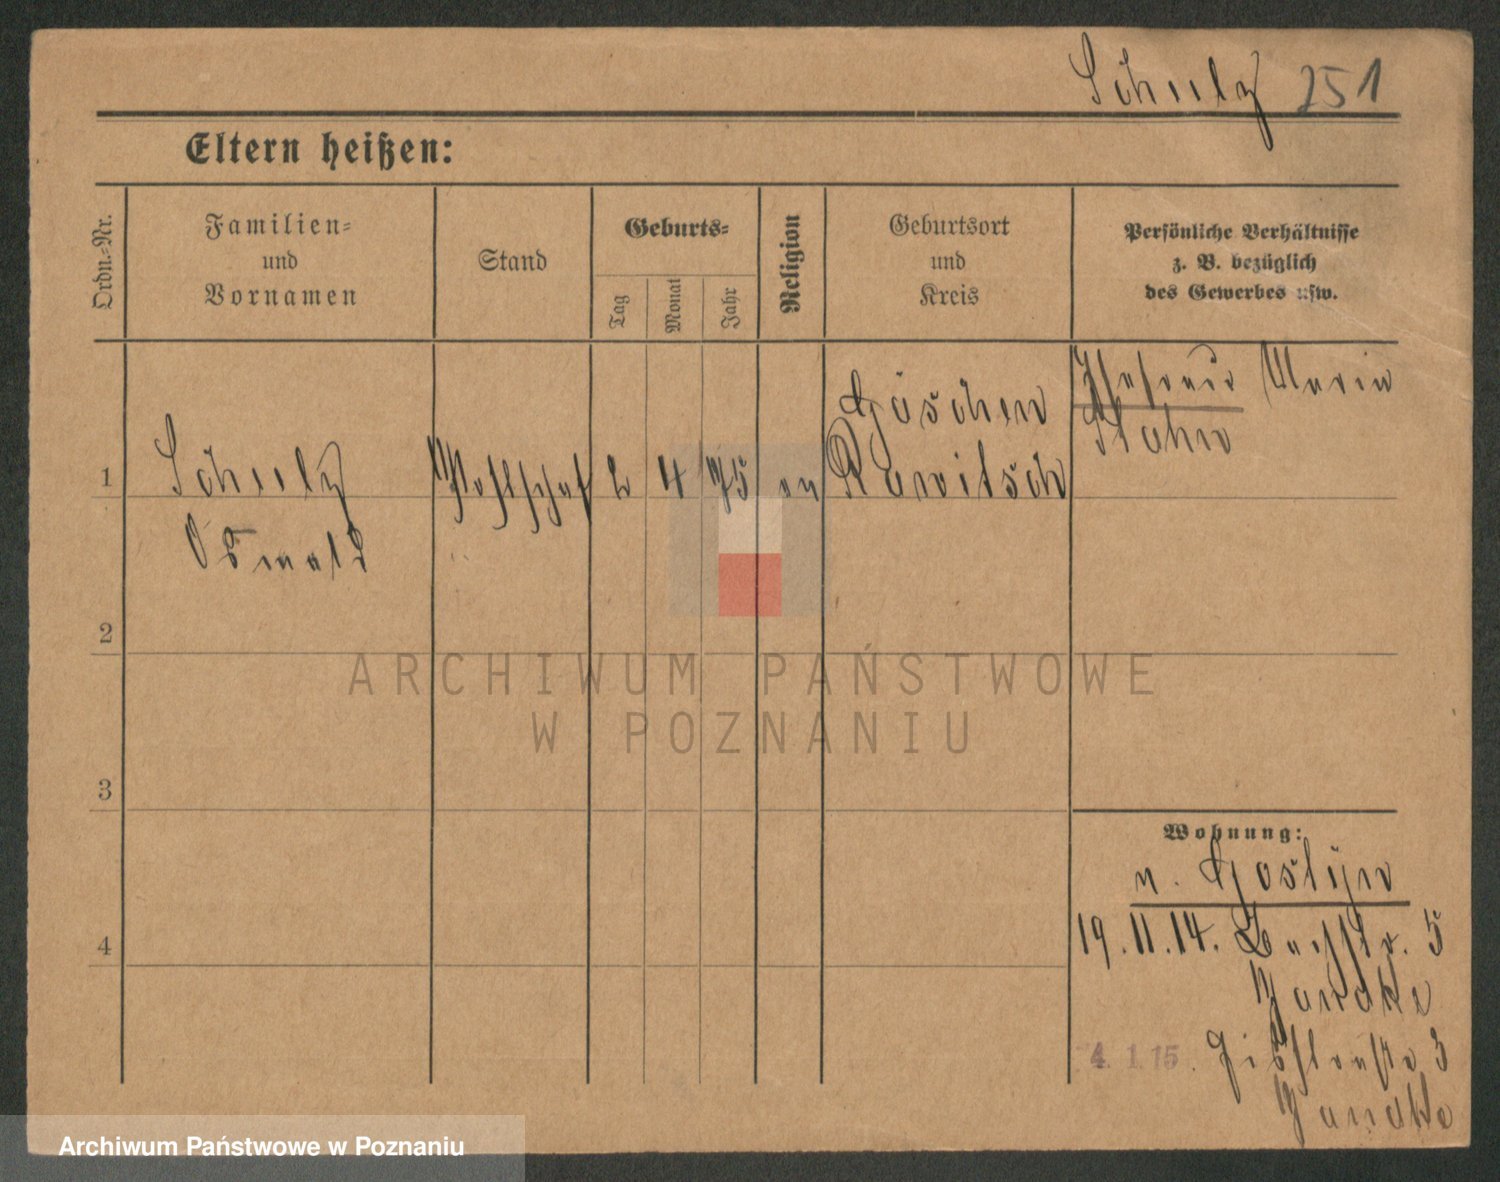 Schulz 251
Eltern heißen:
Ordn.-Nr.
Familien-
und
Vornamen
Stand
Geburts-
Tag
Monat
Jahr
Religion
Geburtsort
und
Kreis
Persönliche Verhältnisse
z. B. bezüglich
des Gewerbes usw.
1
Schulz
Oswald
2 4 75 ev
Göschen
Rawitsch
Ehefrau Maria
2
3
4
Wohnung:
n. Gostyn
19.11.14. 5
4. 1. 15. 3
ARCHIWUM PAŃSTWOWE
W POZNANIU
Archiwum Państwowe w Poznaniu